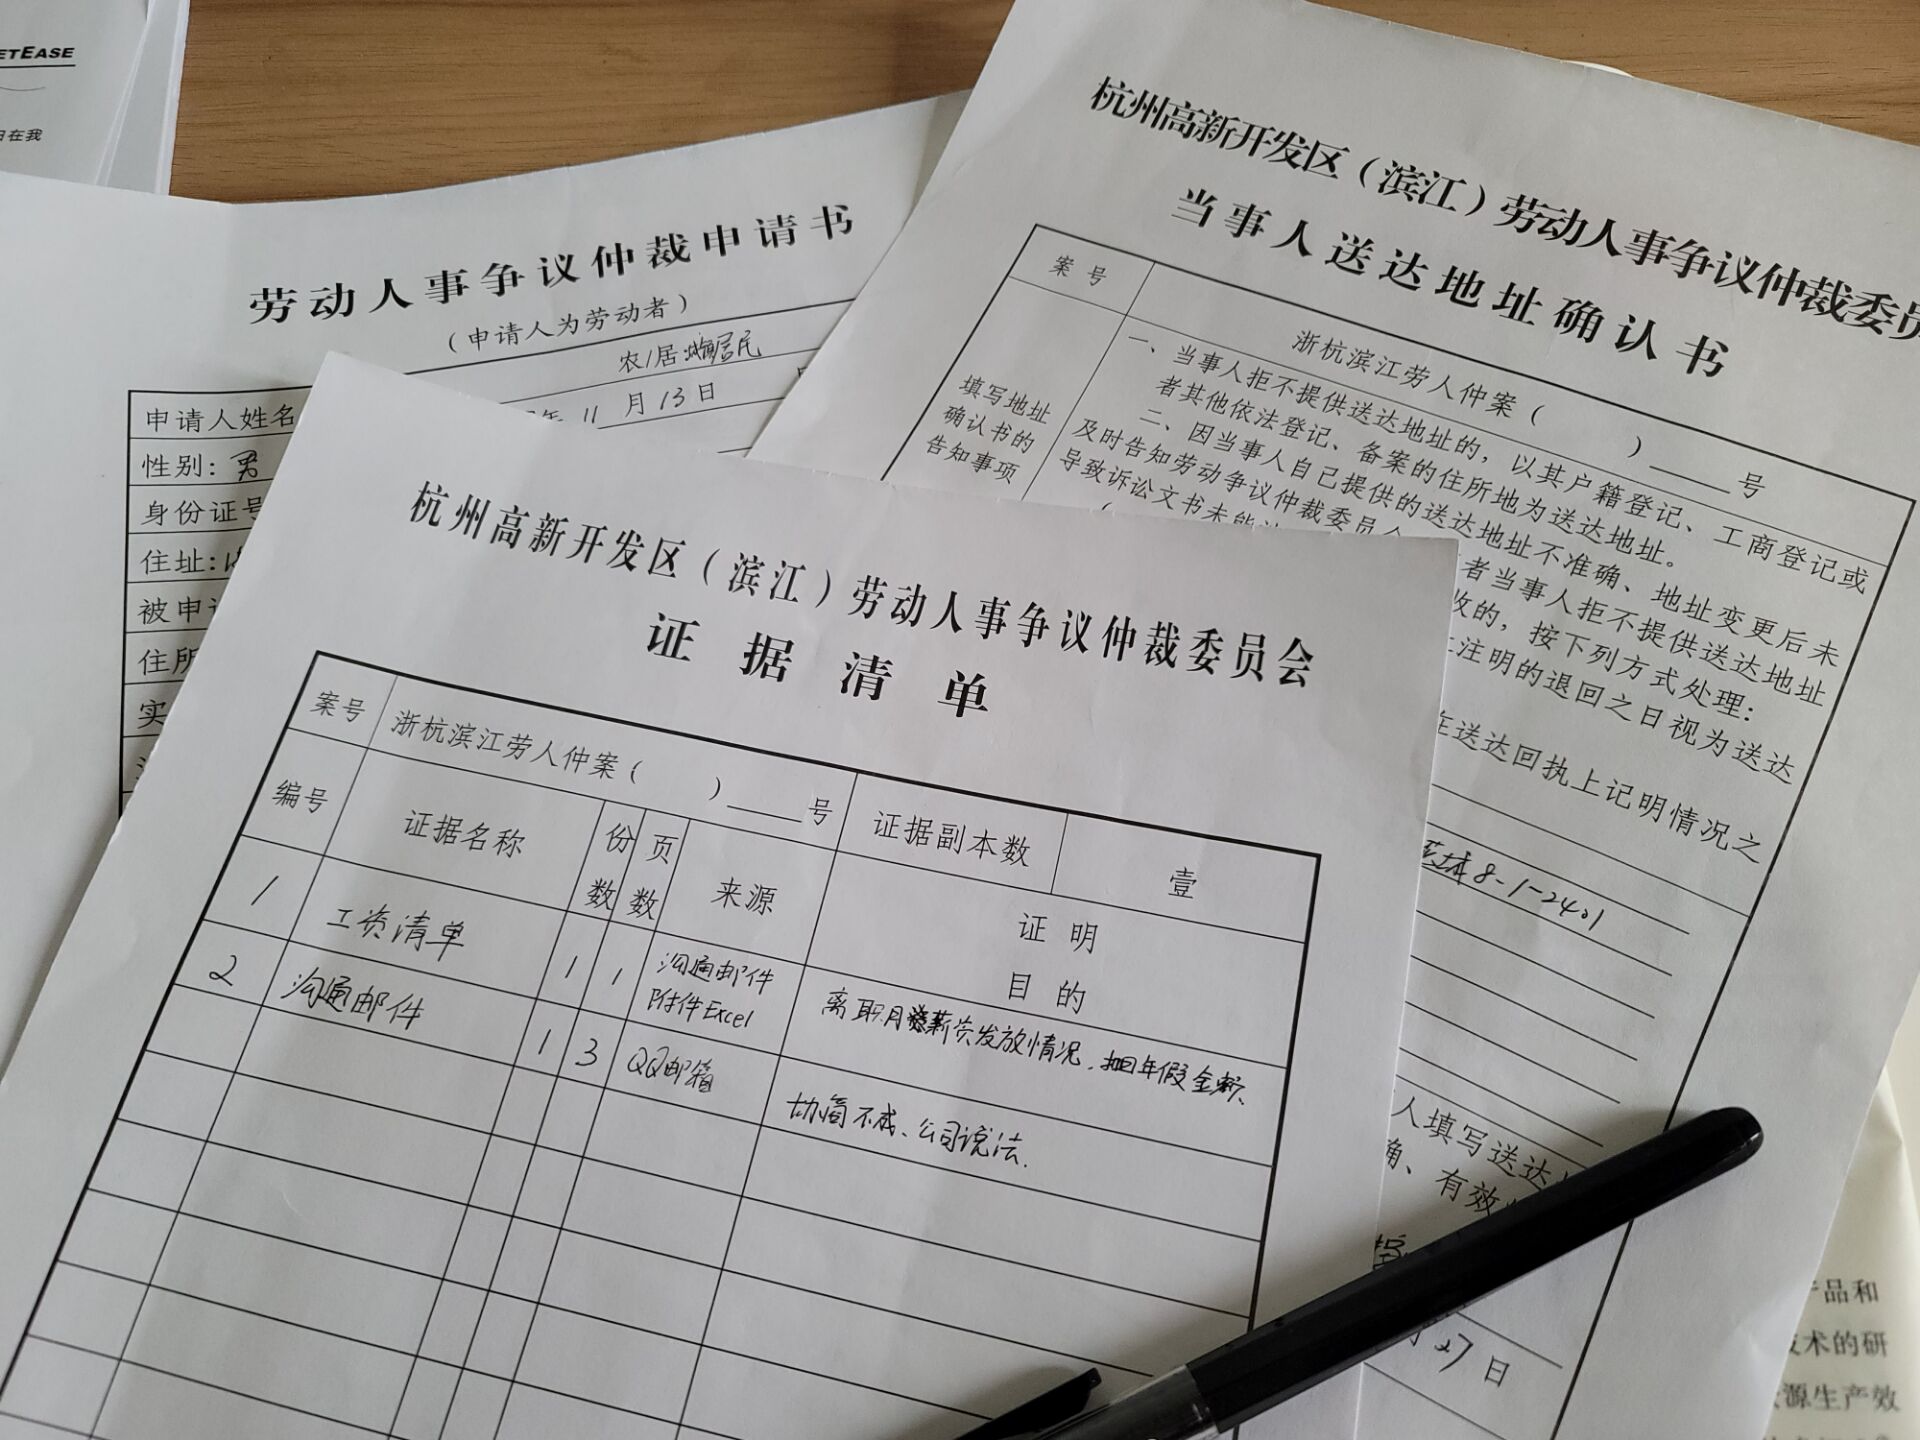 ETEASE
日在我
劳动人事争议仲裁申请书
(申请人为劳动者)
农/居
年 11 月 13 日
申请人姓名
性别: 男
身份证号
住址:
被申
住所
实
杭州高新开发区(滨江)劳动人事争议仲裁委员
当事人送达地址确认书
案号
浙杭滨江劳人仲案( ) 号
填写地址
确认书的
告知事项
一、当事人拒不提供送达地址的,以其户籍登记、工商登记或
者其他依法登记、备案的住所地为送达地址。
二、因当事人自己提供的送达地址不准确、地址变更后未
及时告知劳动争议仲裁委员
者当事人拒不提供送达地址
导致诉讼文书未能
收的,按下列方式处理:
注明的退回之日视为送达
在送达回执上记明情况之
8-1-2401
人填写送达
确、有效
27 日
杭州高新开发区(滨江)劳动人事争议仲裁委员会
证据清单
案号 浙杭滨江劳人仲案( ) 号 证据副本数 壹
编号 证据名称 份数 页数 来源 证明目的
1 工资清单 1 1 沟通邮件
附件Excel
离职月薪资发放情况,扣年假金额、
2 沟通邮件 1 3 QQ邮箱 协商不成、公司说法.
产品和
技术的研
源生产效